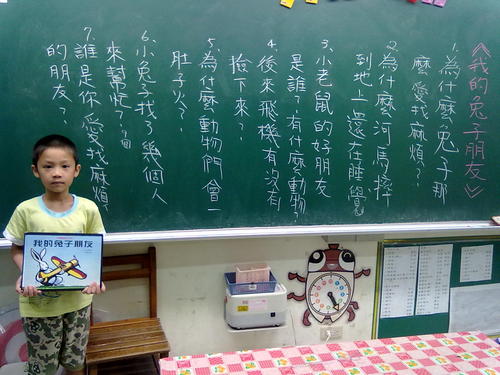 《我的兔子朋友》
1.為什麼兔子那
麼愛找麻煩？
2.為什麼河馬摔
到地上還在睡覺
3.小老鼠的好朋友
是誰？有什麼動物？
4.後來飛機有沒有
撿下來？
5.為什麼動物們會一
肚子火？
6.小兔子找了幾個人
來幫忙？
7.誰是你愛找麻煩
的朋友？
我的兔子朋友